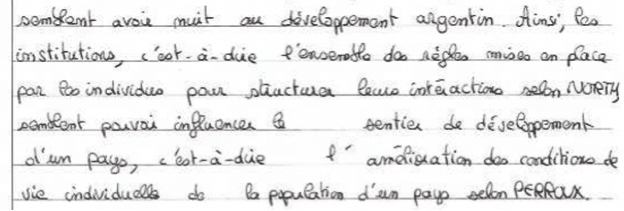 semblent avoir nuit au développement argentin. Ainsi, les
institutions, c'est-à-dire l'ensemble des règles mises en place
par les individus pour structurer leurs intéractions selon NORTH
semblent pouvoir influencer le sentier de développement
d'un pays, c'est-à-dire l'amélioration des conditions de
vie individuelle de la population d'un pays selon PERROUX.